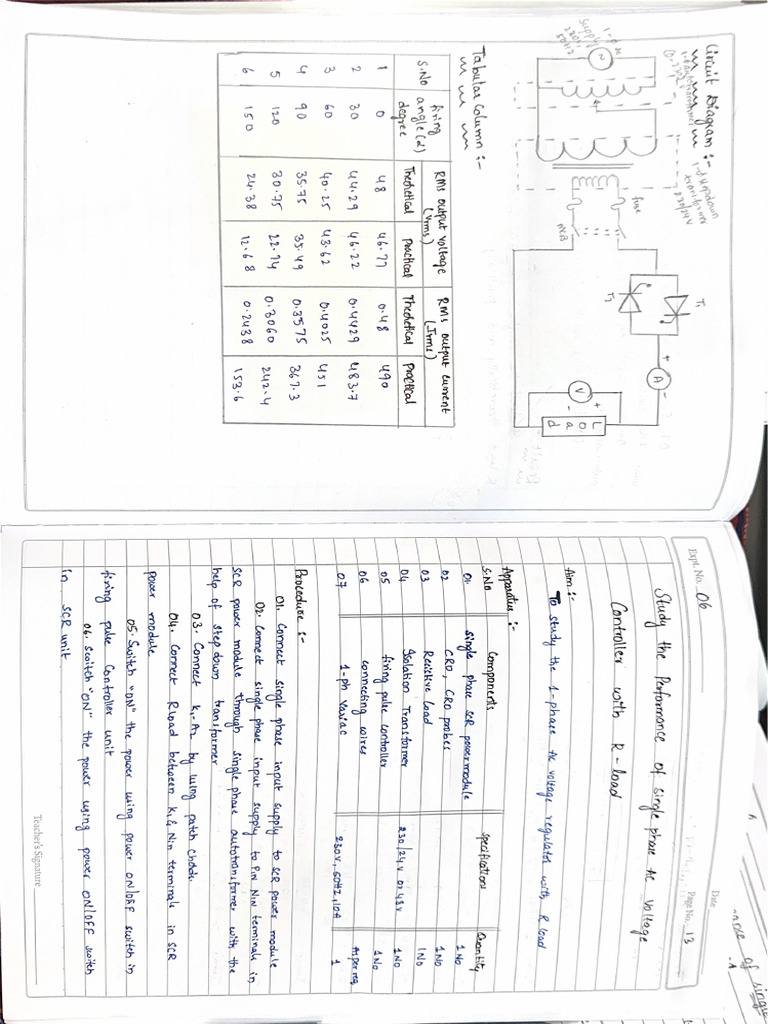 Circuit Diagram :-
1-φ autotransformer
1-φ stepdown
transformer
230/24V
1-φ ac
supply
230V,
50Hz
fuse
MCB
T1
T2
+ A -
V
+
-
Load
Tabular Column :-
S.No | firing angle(α) degree | RMS output voltage (Vrms) | RMS output current (Irms)
Theoretical | Practical | Theoretical | Practical
1 | 0 | 48 | 46.77 | 0.48 | 490
2 | 30 | 44.29 | 46.22 | 0.4429 | 483.7
3 | 60 | 40.25 | 43.62 | 0.4025 | 451
4 | 90 | 35.75 | 35.49 | 0.3575 | 367.3
5 | 120 | 30.75 | 22.74 | 0.3060 | 242.4
6 | 150 | 24.38 | 12.68 | 0.2438 | 153.6
Expt. No. 06
Date
Page No. 13
Study the Performance of single phase AC Voltage
Controller with R-load
Aim:-
To study the 1-phase AC voltage regulator with R load
Apparatus :-
S.No | Components | Specifications | Quantity
01. | Single phase SCR power module | 1 No
02 | CRO, CRO probes | 1 No
03 | Resistive load | 1 No
04 | Isolation Transformer | 230/24V or 48V | 1 No
05 | firing pulse controller | 1 No
06 | connecting wires | As per req
07 | 1-ph Variac | 230V, 50Hz, 10A | 1
Procedure :-
01. Connect single phase input supply to SCR power module
02. Connect single phase input supply to Pin Nin terminals in
SCR power module through single phase autotransformer with the
help of step down transformer
03. Connect K1-A2 by using patch chords.
04. Connect R load between K1 & Nin terminals in SCR
power module
05. Switch "ON" the power using power ON/OFF switch in
firing pulse controller unit
06. Switch "ON" the power using power ON/OFF switch
in SCR unit
Teacher's Signature